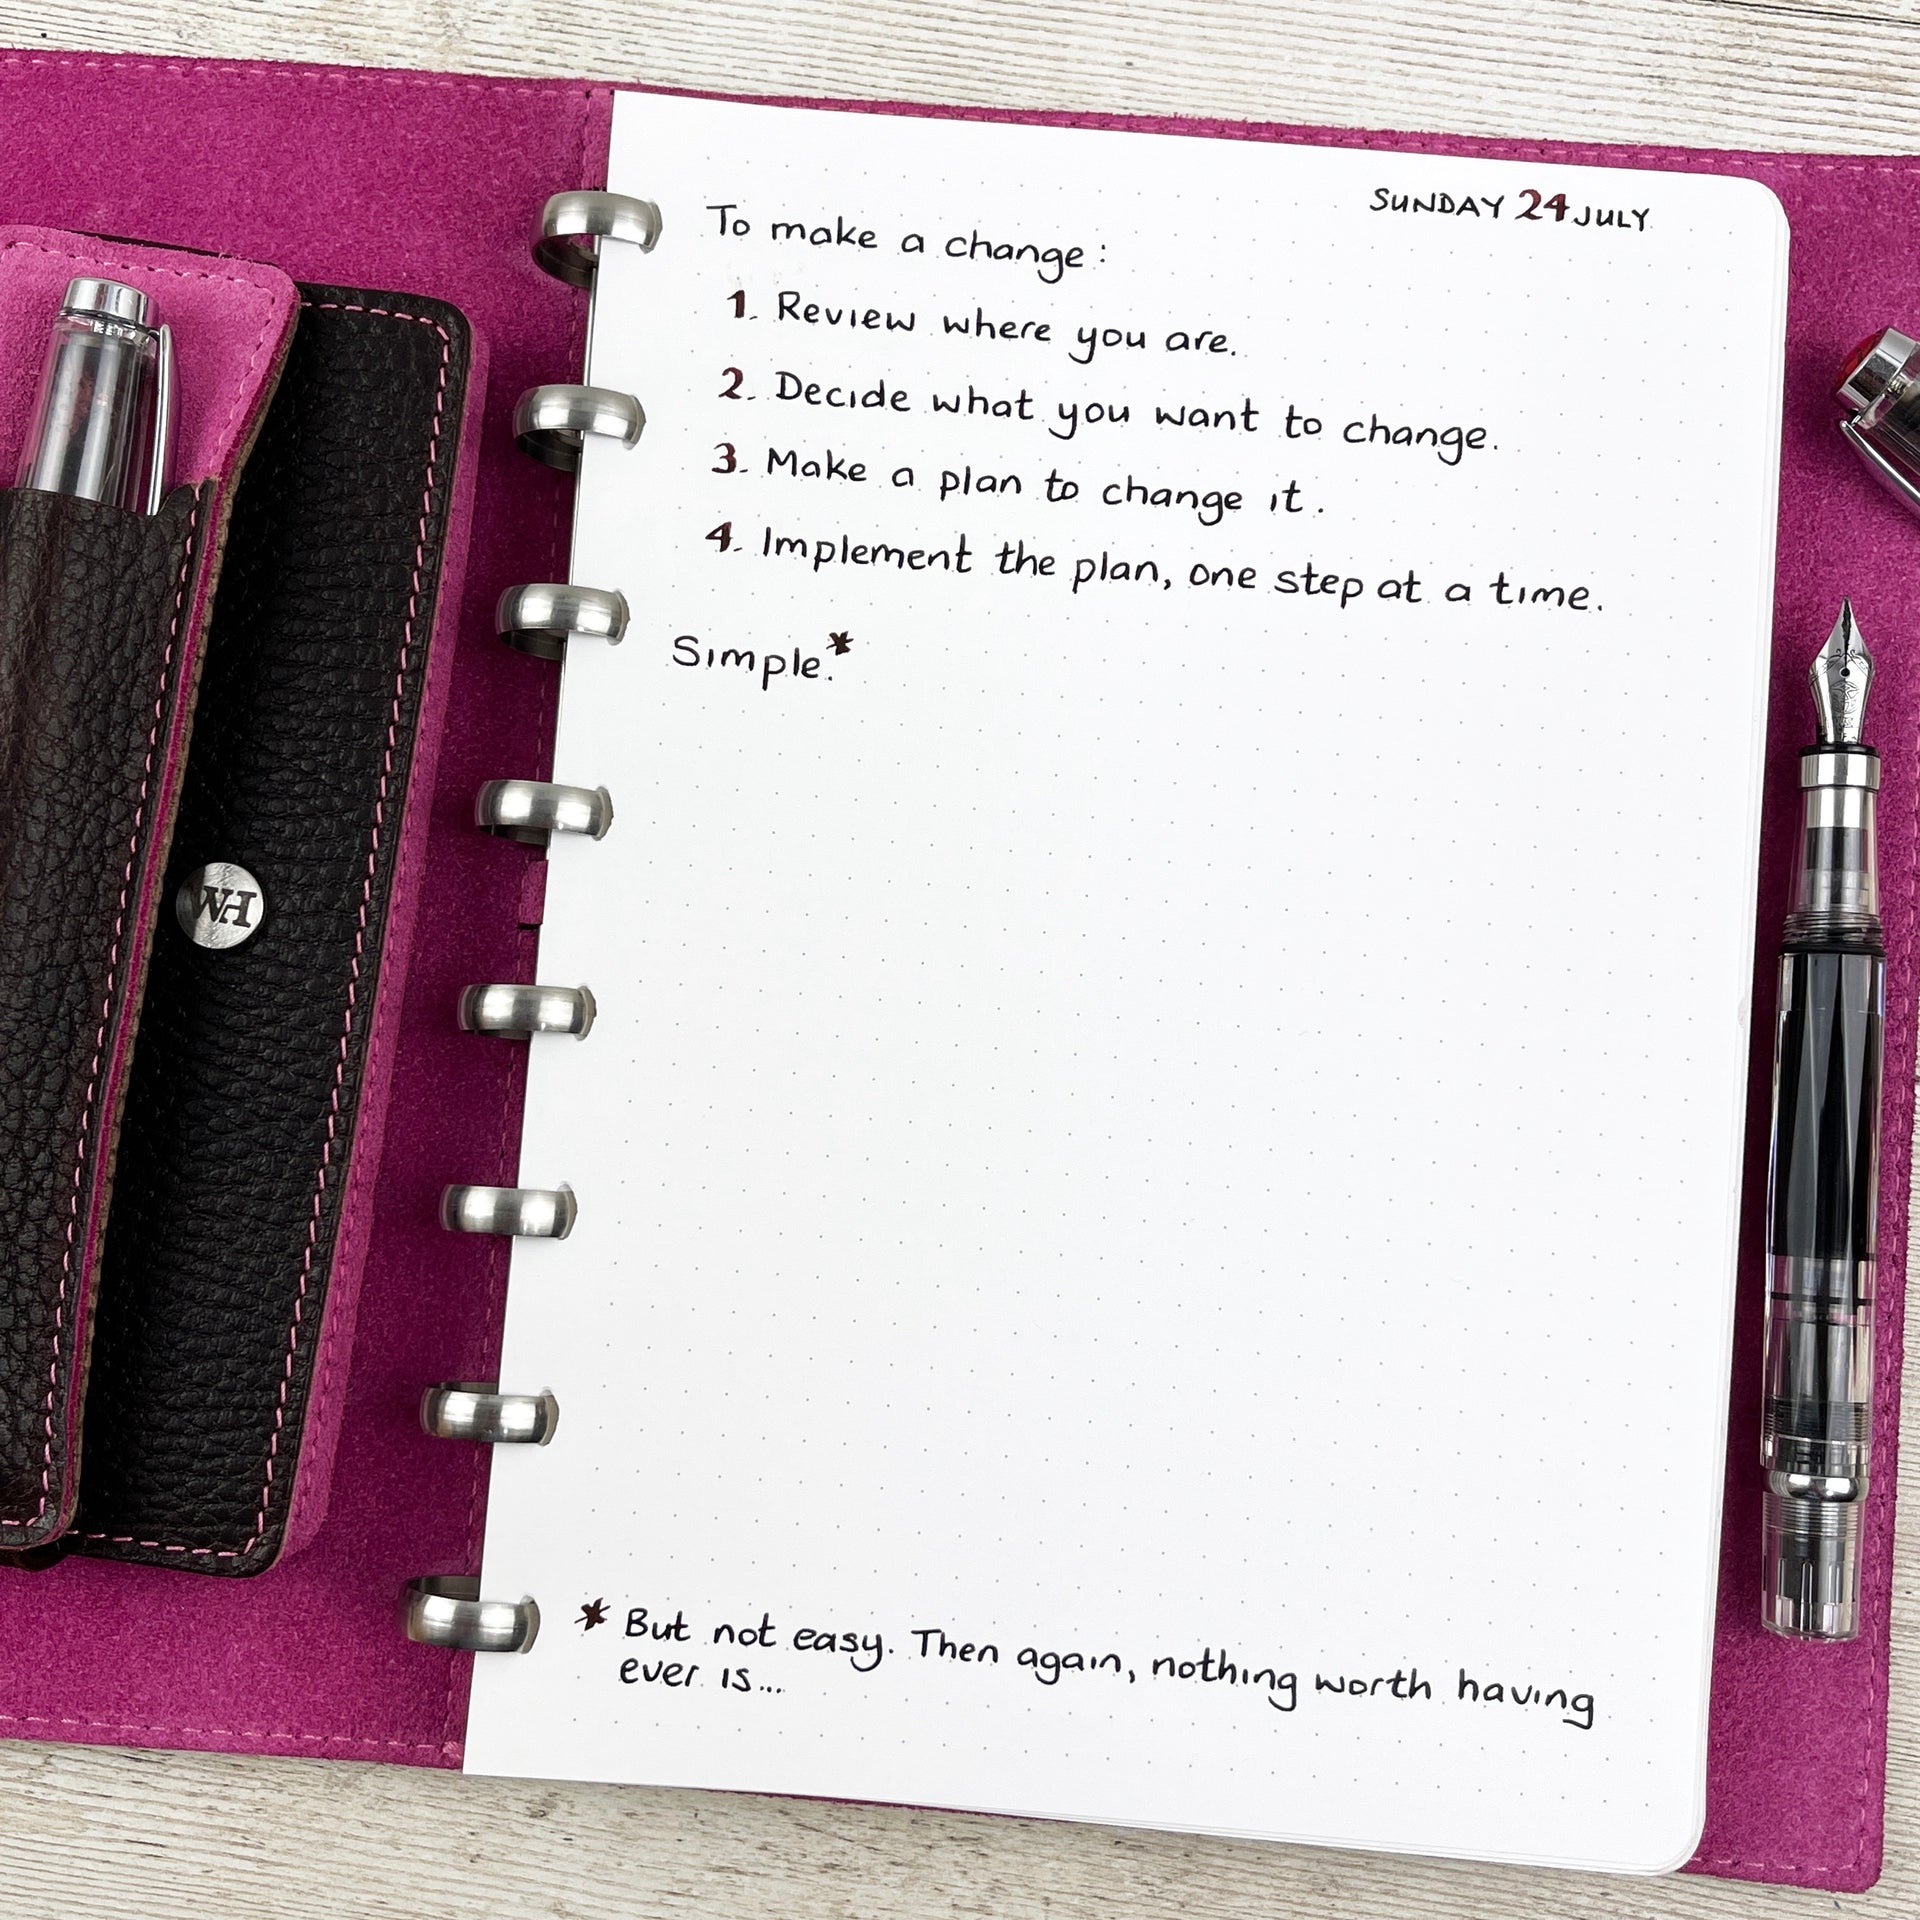 SUNDAY 24 JULY
To make a change:
1. Review where you are.
2. Decide what you want to change.
3. Make a plan to change it.
4. Implement the plan, one step at a time.
Simple.*
* But not easy. Then again, nothing worth having
ever is...
WH